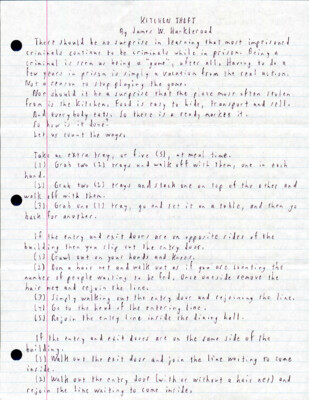 KITCHEN THEFT
By James W. Harkleroad
There should be no surprise in learning that most imprisoned
criminals continue to be criminals while in prison. Being a
criminal is seen as being a "game", after all. Having to do a
few years in prison is simply a vacation from the real action.
Not a reason to stop playing the game.
Nor should it be a surprise that the place most often stolen
from is the kitchen. Food is easy to hide, transport and sell.
And everybody eats. So there is a ready market it.
So how is it done?
Let us count the ways.
Take an extra tray, or five (5), at meal time.
(1) Grab two (2) trays and walk off with them, one in each
hand.
(2) Grab two (2) trays and stack one on top of the other and
walk off with them.
(3) Grab one (1) tray, go and set it on a table, and then go
back for another.
If the entry and exit doors are on opposite sides of the
building then you slip out the entry door.
(1) Crawl out on your hands and knees.
(2) Don a hair net and walk out as if you are counting the
number of people waiting to be fed. Once outside remove the
hair net and rejoin the line.
(3) Simply walking out the entry door and rejoining the line.
(4) Go to the head of the entering line.
(5) Rejoin the entry line inside the dining hall.
If the entry and exit doors are on the same side of the
building.
(1) Walk out the exit door and join the line waiting to come
inside.
(2) Walk out the entry door (with or without a hair net) and
rejoin the line waiting to come inside.